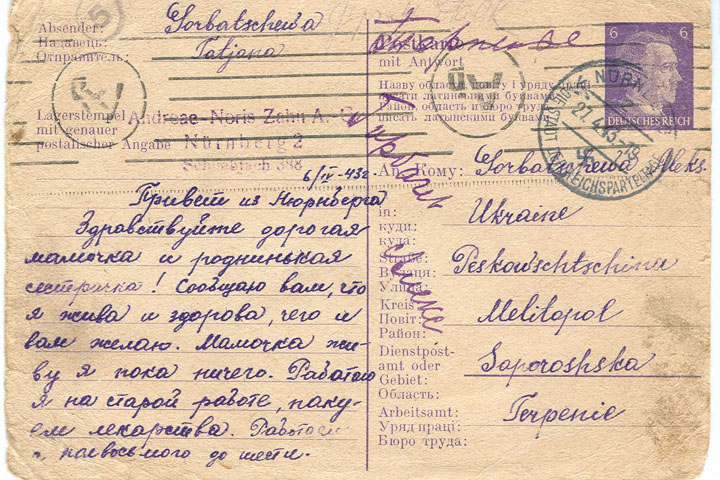 Absender:
Надавець:
Отправитель:
Sorbatschewa
Tatjana
Lagerstempel
mit genauer
postalischer Angabe
Andreae-Noris Zahn A.-G.
Nürnberg 2
388
6/IV-43г.
Привет из Нюрнберга
Здравствуйте дорогая
мамочка и роднинькая
сестричка! Сообщаю вам, что
я жива и здорова, чего и
вам желаю. Мамочка жи-
ву я пока ничего. Работаю
я на старой работе, паку-
ем лекарства. Работаем
с полвосьмого до шести.
Postkarte
mit Antwort
Назву області, пошту і уряду праці
писати латинськими буквами
область и бюро труда
писать латинскими буквами
6 6
DEUTSCHES REICH
NÜRNBERG
27.4.43
REICHSPARTEITAGE
An Кому: Sorbatschewa Aleks.
in:
куди:
куда:
Ukraine
Straße:
Вулиця:
Улица:
Peskowschtschinu
Kreis
Повіт:
Район:
Melitopol
Dienstpost-
amt oder
Gebiet:
Область:
Saporoshska
Arbeitsamt:
Уряд праці:
Бюро труда:
Terpenie